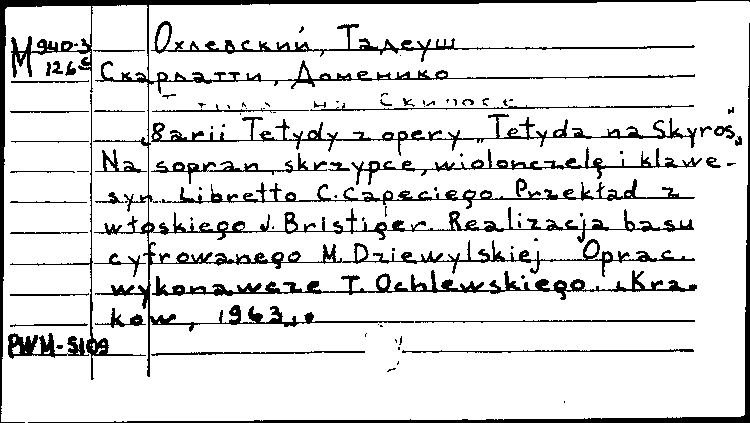 М 940-3
126c
Охлевский, Тадеуш
Скарлатти, Доменико
на Скиросе
„8 arii Tetydy z opery „Tetyda na Skyros”„
Na sopran, skrzypce, wiolonczelę i klawe-
syn. Libretto C. Capeciego. Przekład z
włoskiego J. Bristiger. Realizacja basu
cyfrowanego M. Dziewylskiej. Oprac.
wykonawcze T. Ochlewskiego. „Kra-
ków, 1963„.
PWM-5109